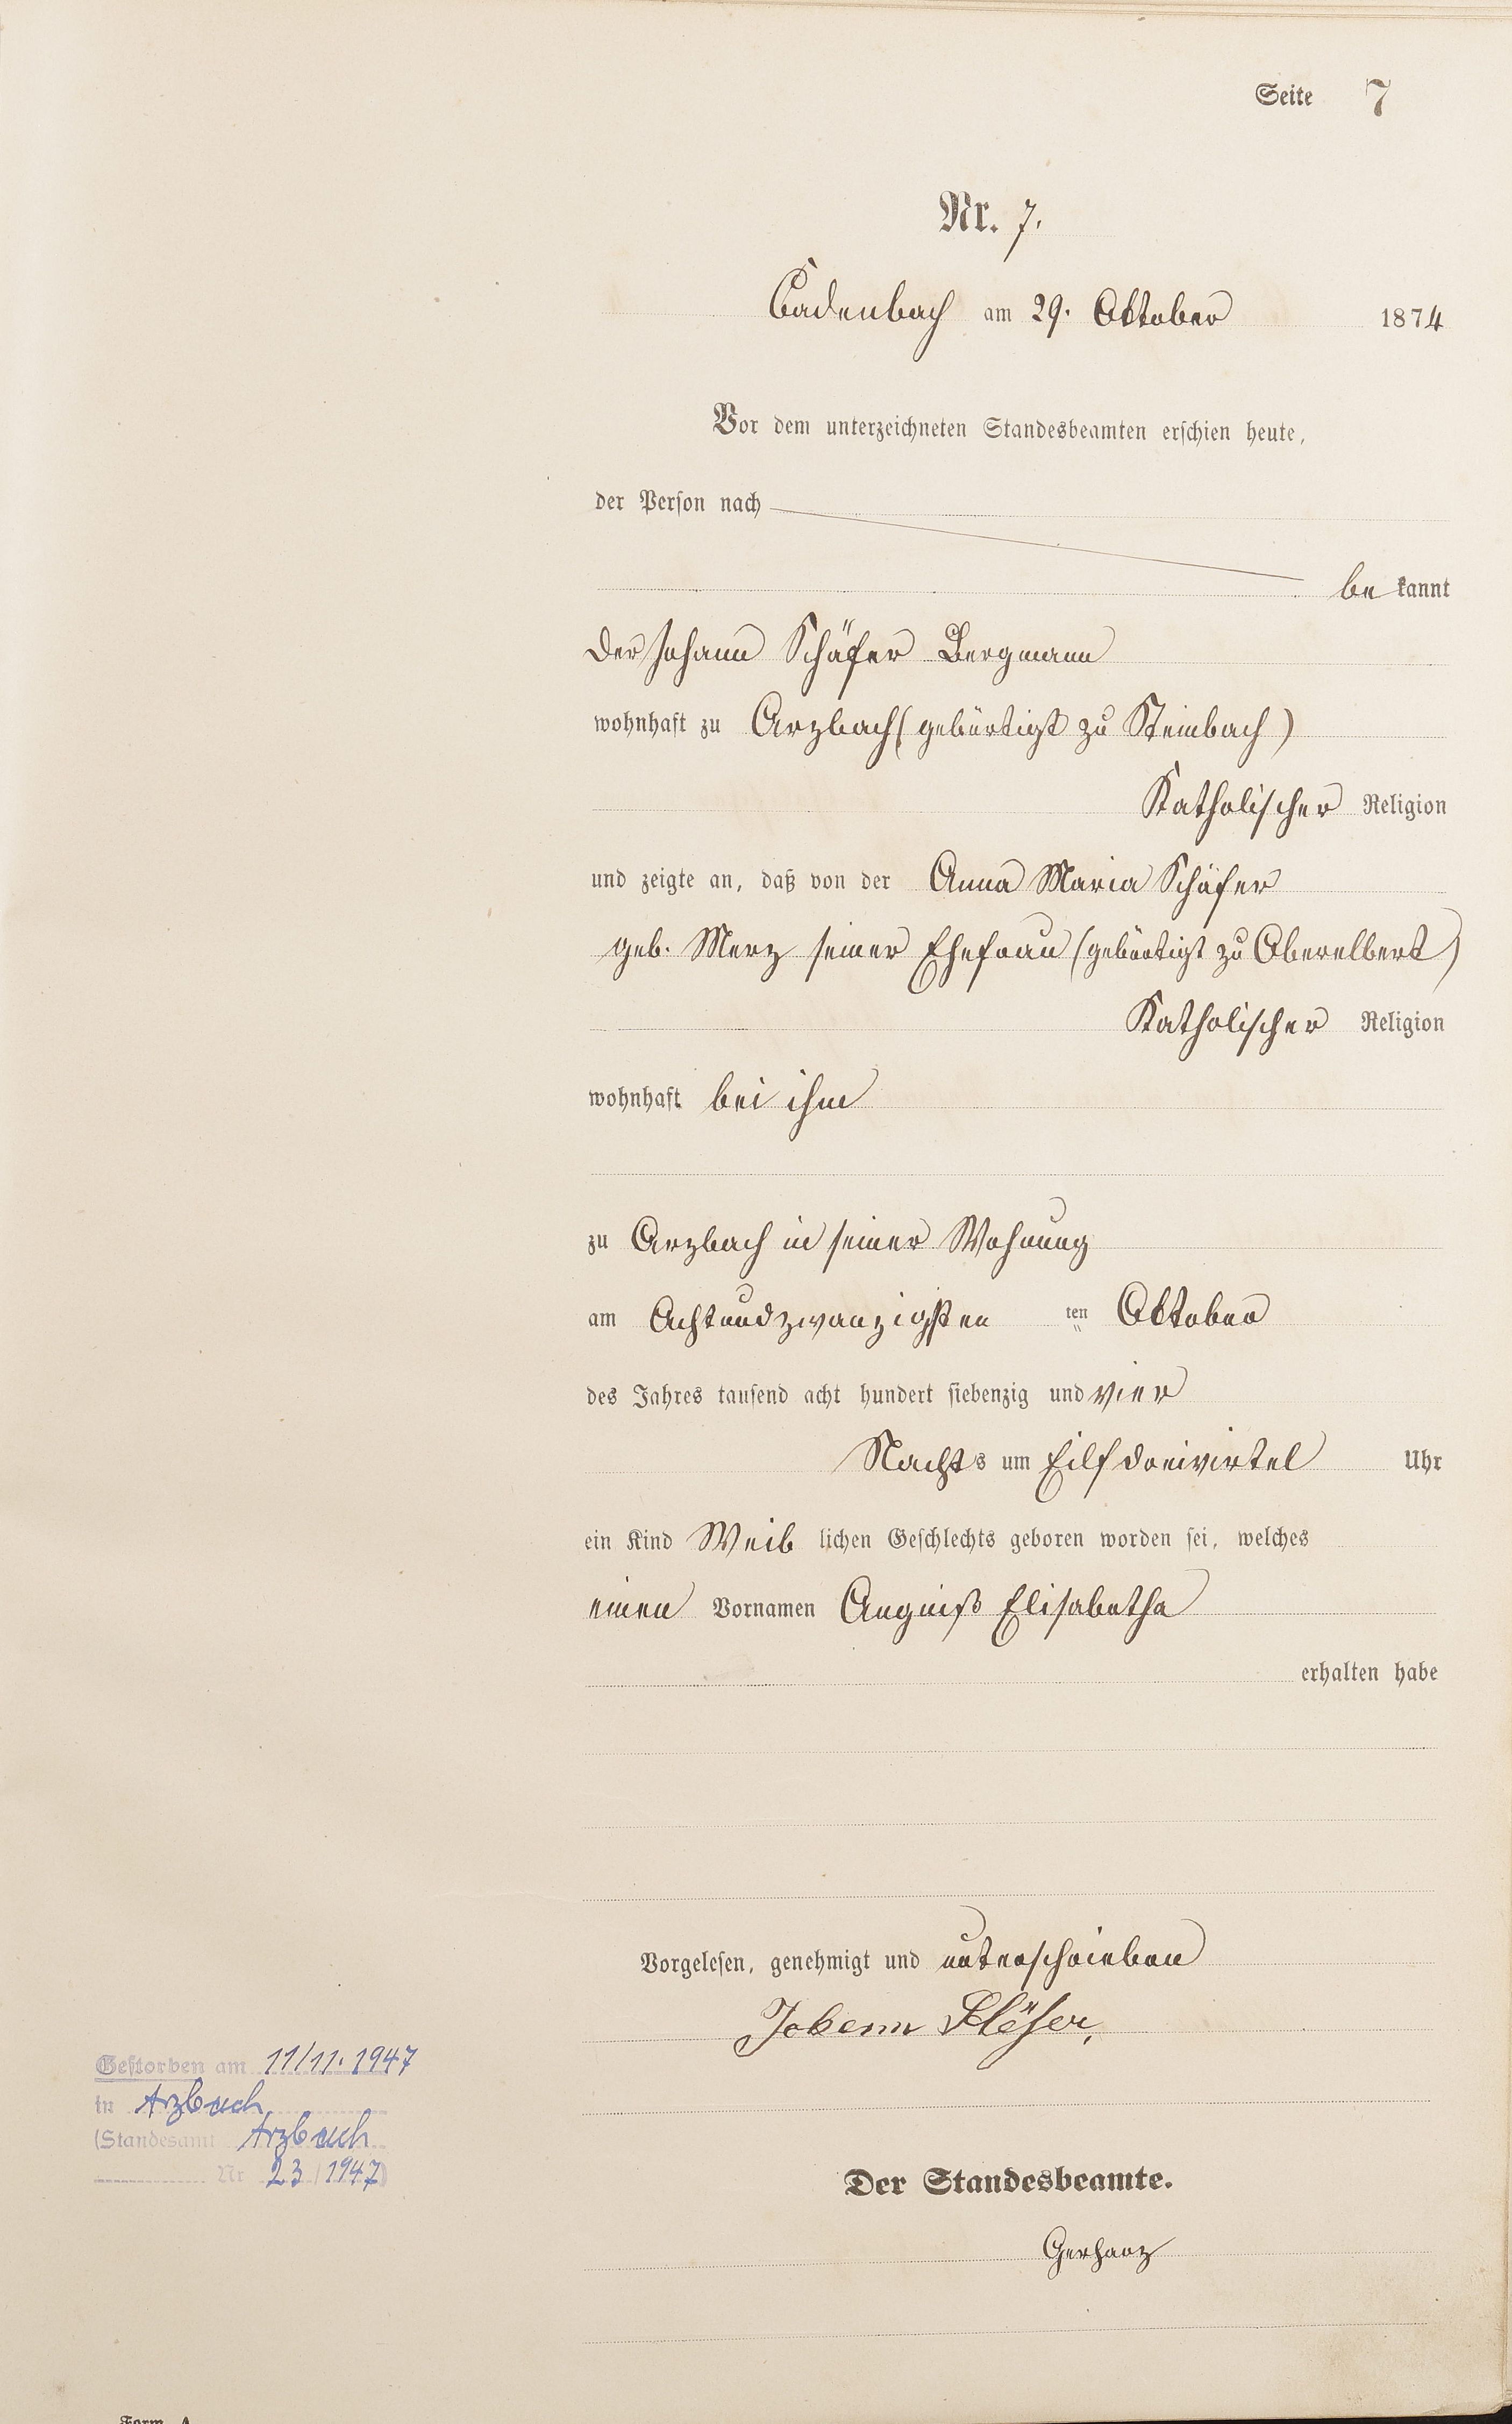 Seite 7
Nr. 7.
Cadenbach am 29. Oktober 1874
Vor dem unterzeichneten Standesbeamten erschien heute,
der Person nach
be kannt
der Johann Schäfer Bergmann
wohnhaft zu Arzbach (gebürtigt zu Steinbach)
Katholischer Religion
und zeigte an, daß von der Anna Maria Schäfer
geb. Merz seiner Ehefrau (gebürtigt zu Oberelbert)
Katholischer Religion
wohnhaft bei ihm
zu Arzbach in seiner Wohnung
am Achtundzwanzigsten ten Oktober
des Jahres tausend acht hundert siebenzig und vier
Nachts um Eilf dreivirtel Uhr
ein Kind Weib lichen Geschlechts geboren worden sei, welches
einen Vornamen Angniß Elisabetha
erhalten habe
Vorgelesen, genehmigt und unterschrieben
Der Standesbeamte.
Gerharz
Gestorben am 11/11. 1947
in Arzbach
(Standesamt Arzbach
Nr 23/1947)
Form. A